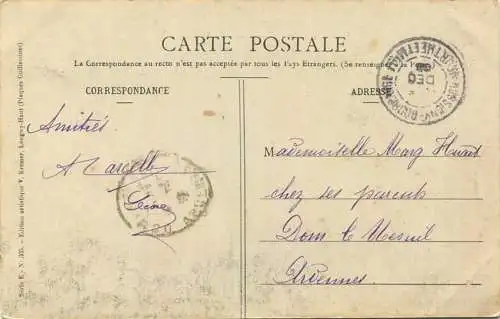 CARTE POSTALE
La Correspondance au recto n'est pas acceptée par tous les Pays Etrangers. (Se renseigner à la Poste)
CORRESPONDANCE
ADRESSE
Amitiés
Marcelle
Mademoiselle Marg
chez ses parents
Dom le Mesnil
Ardennes
DEC
MEURTHE-ET-MOSELLE
Série E, N° - Edition artistique V. Kremer, Longwy-Haut (Plaques Guilleminot)